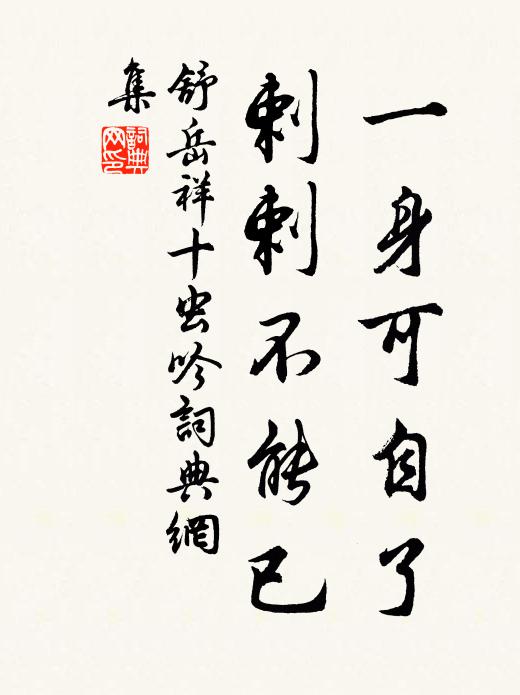 一身可自了
刺刺不能已
舒岳祥十虫吟詞典網
集
詞典
网印